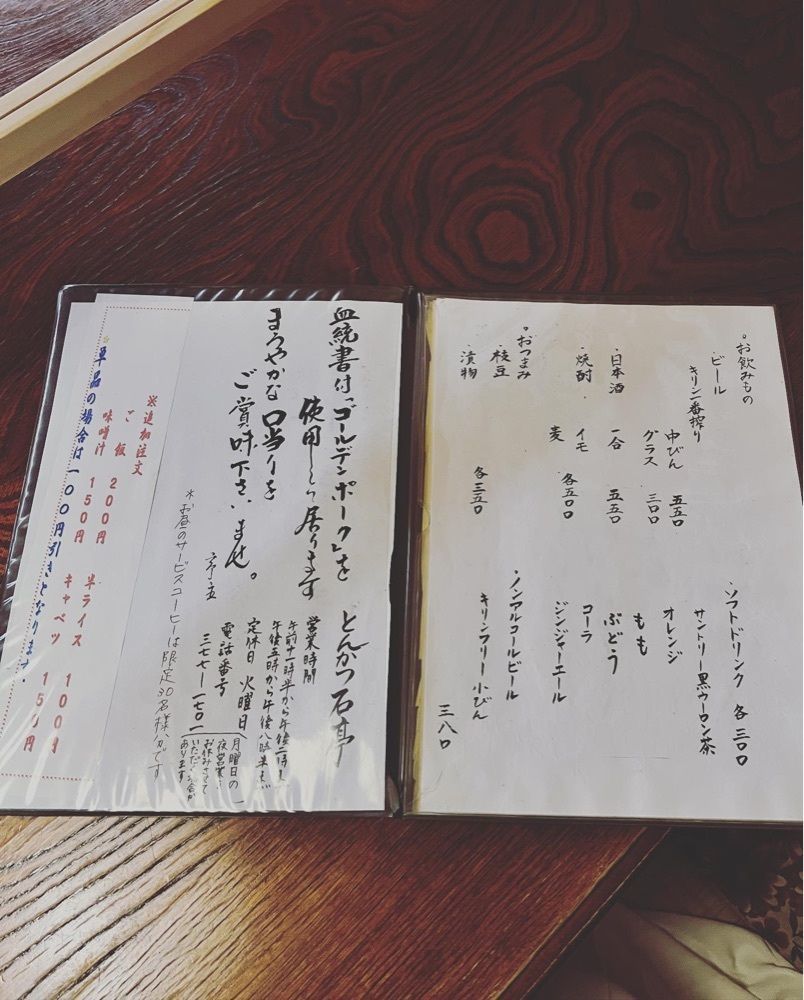 ○お飲みもの
ビール
キリン一番搾り
中びん 五五〇
グラス 三〇〇
・日本酒 一合 五五〇
・焼酎 イモ
麦 各五〇〇
○おつまみ
枝豆
漬物 各三五〇
・ソフトドリンク 各三〇〇
サントリー黒ウーロン茶
オレンジ
もも
ぶどう
コーラ
ジンジャーエール
・ノンアルコールビール
キリンフリー小びん
三八〇
血統書付「ゴールデンポーク」を
使用して居ります
まろやかな口当りを
ご賞味下さいませ。
亭主
とんかつ石亭
営業時間
午前十一時半から午後二時まで
午後五時から午後八時半まで
定休日 火曜日
(月曜日の
夜営業も
お休みさせて
いただく場合が
あります)
電話番号
三七七一一七〇一
*お昼のサービスコーヒーは限定30名様までです
※追加注文
ご飯 200円 半ライス 100円
味噌汁 150円 キャベツ 150円
☆単品の場合は一〇〇円引きとなります。